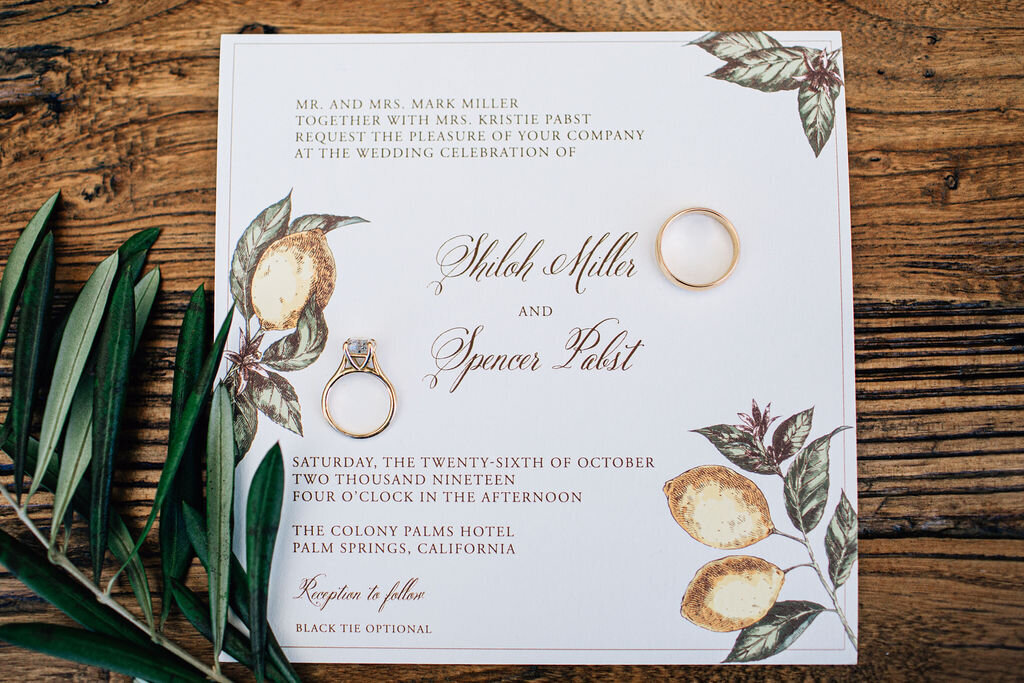 MR. AND MRS. MARK MILLER
TOGETHER WITH MRS. KRISTIE PABST
REQUEST THE PLEASURE OF YOUR COMPANY
AT THE WEDDING CELEBRATION OF
Shiloh Miller
AND
Spencer Pabst
SATURDAY, THE TWENTY-SIXTH OF OCTOBER
TWO THOUSAND NINETEEN
FOUR O'CLOCK IN THE AFTERNOON
THE COLONY PALMS HOTEL
PALM SPRINGS, CALIFORNIA
Reception to follow
BLACK TIE OPTIONAL